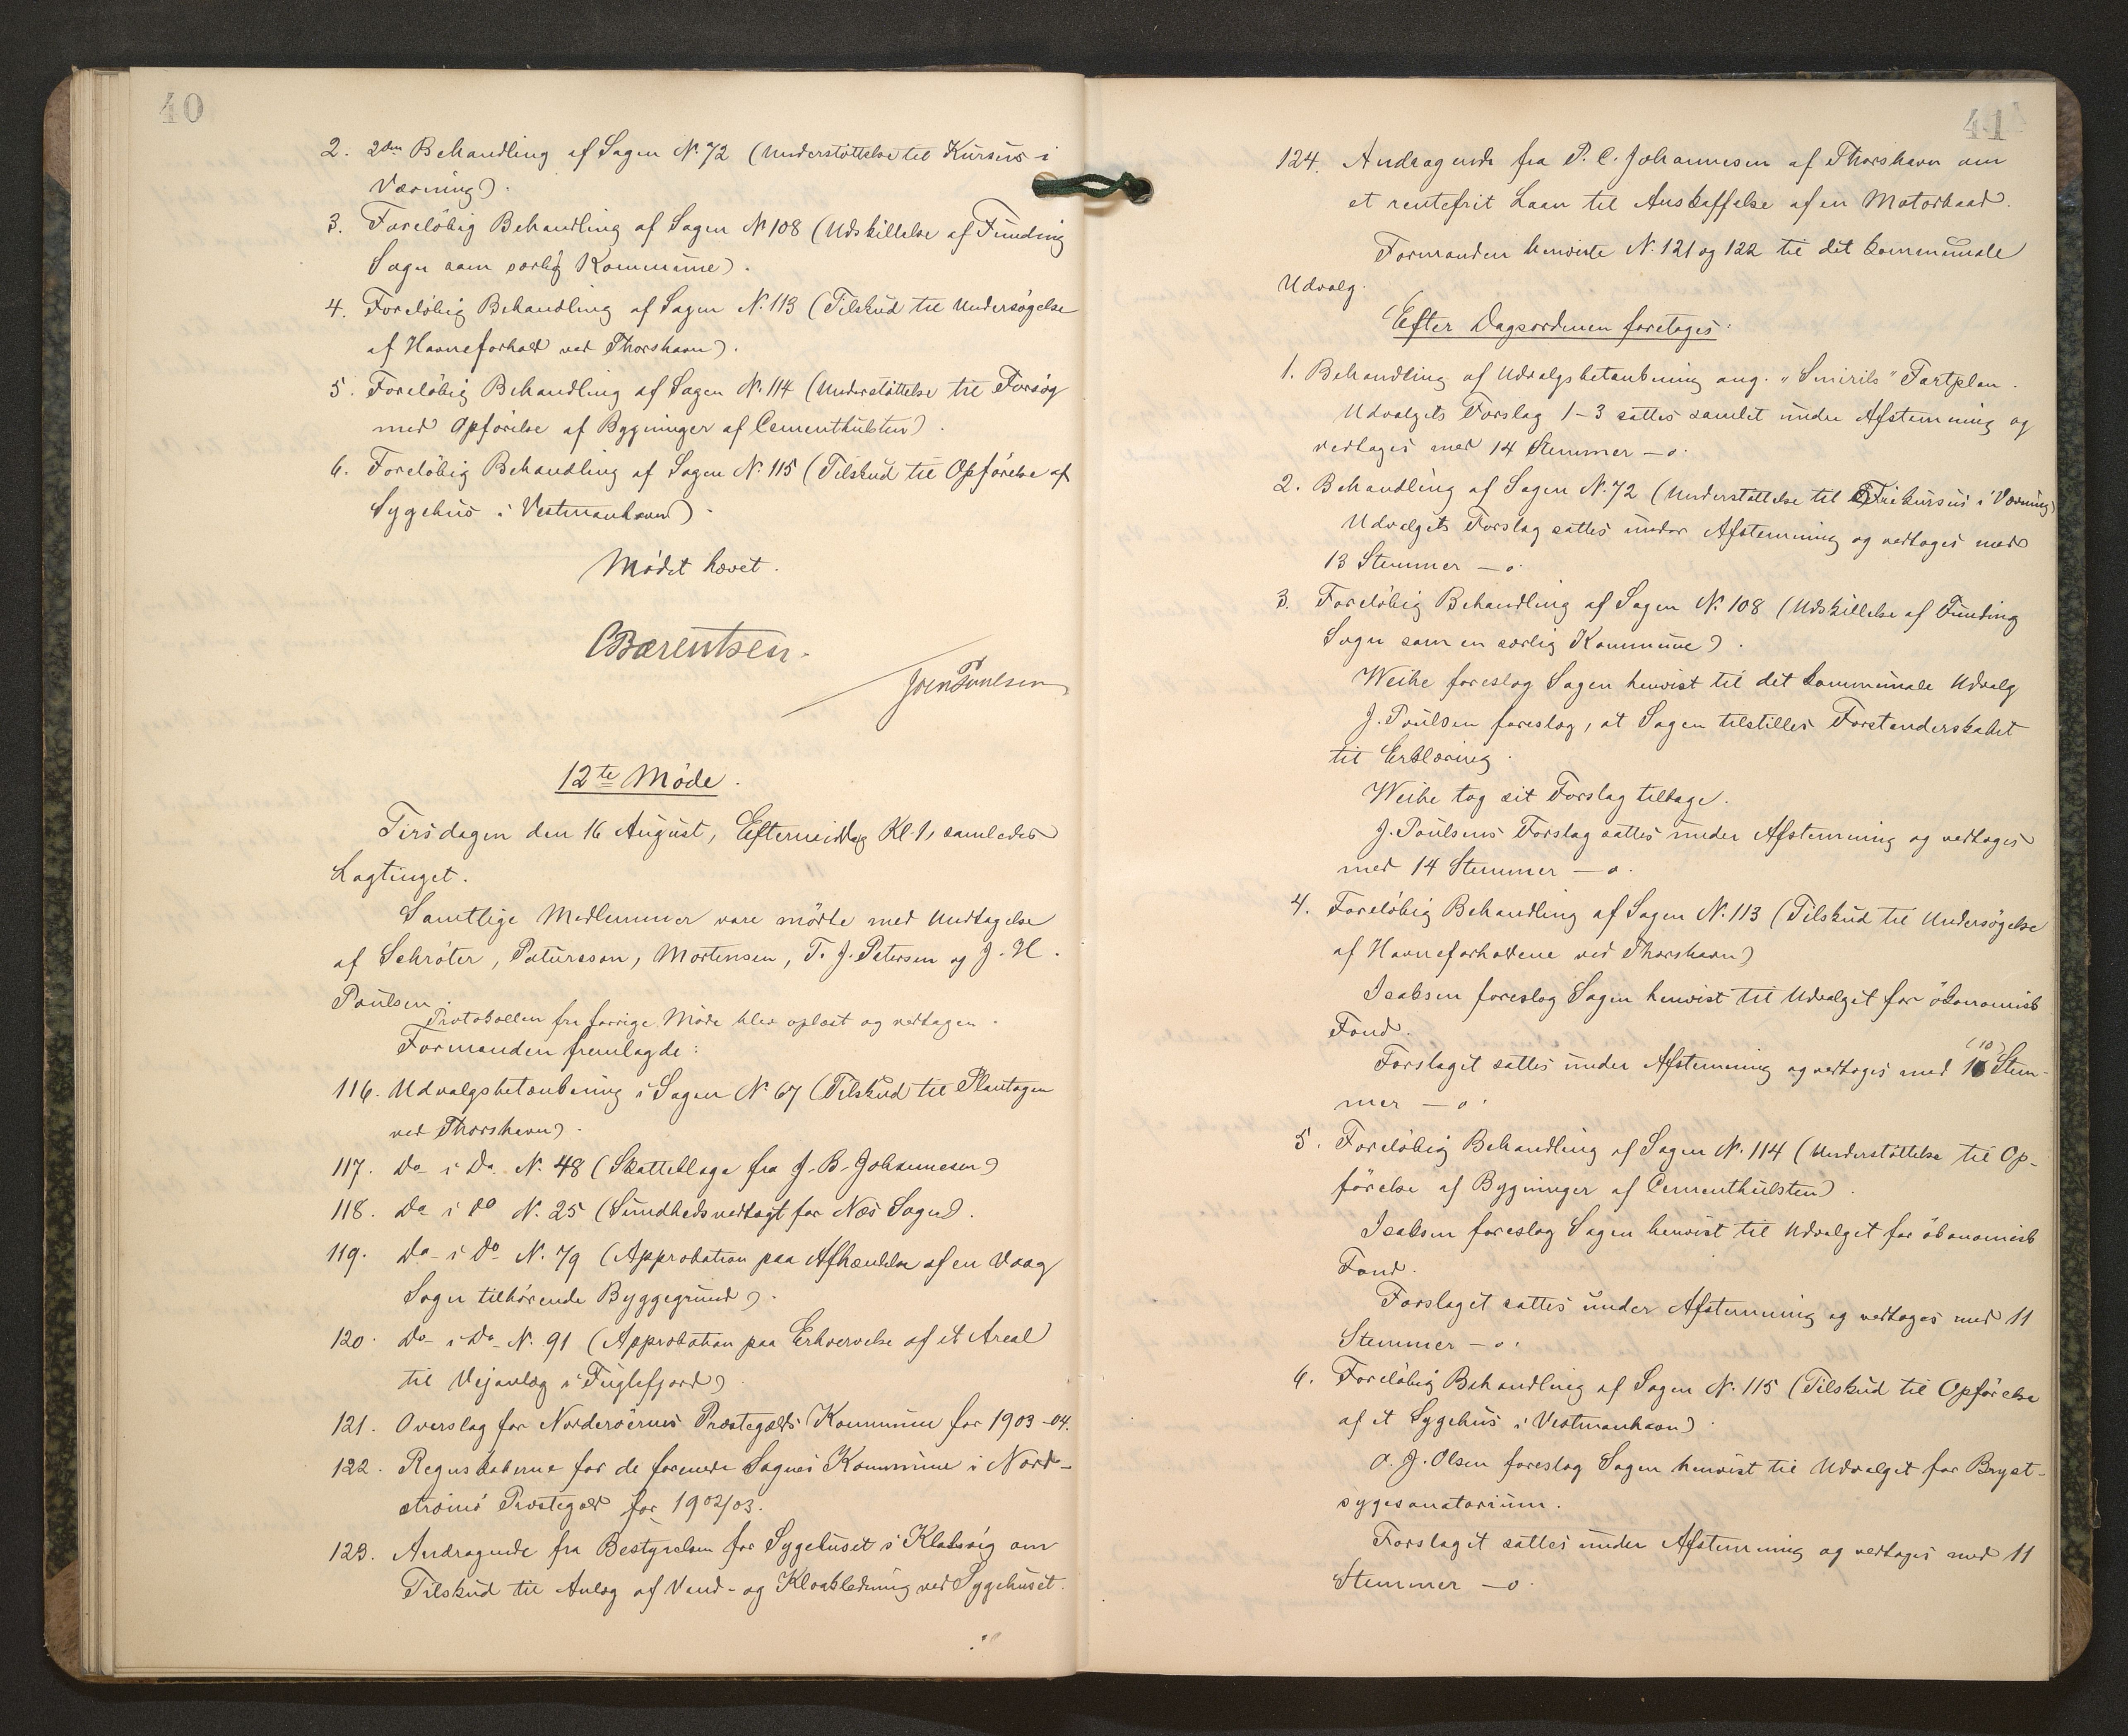 40
2. 2den Behandling af Sagen N. 72 (Understöttelse til Kursus i
Vævning).
3. Forelöbig Behandling af Sagen N. 108 (Udskillelse af Funding
Sogn som særlig Kommune).
4. Forelöbig Behandling af Sagen N. 113 (Tilskud til Undersögelse
af Havneforhold ved Thorshavn).
5. Forelöbig Behandling af Sagen N. 114 (Understöttelse til Forsög
med Opförelse af Bygninger af Cementhulsten).
6. Forelöbig Behandling af Sagen N. 115 (Tilskud til Opförelse af
Sygehus i Vestmanhavn).
Mödet hævet.
CBærentsen.
JoenPoulsen
12te Möde.
Tirsdagen den 16 August, Eftermiddag Kl. 1, samledes
Lagtinget.
Samtlige Medlemmer vare mödte med Undtagelse
af Schröter, Patursson, Mortensen, T. J. Petersen og J. H.
Poulsen.
Protokollen fra forrige Möde blev oplæst og vedtagen.
Formanden fremlagde:
116. Udvalgsbetænkning i Sagen N. 67 (Tilskud til Plantagen
ved Thorshavn).
117. Do i Do N. 48 (Skatteklage fra J. B. Johannesen)
118. Do i Do N. 25 (Sundhedsvedtægt for Næs Sogn).
119. Do i Do N. 79 (Approbation paa Afhændelse af en Vaag
Sogn tilhörende Byggegrund).
120. Do i Do N. 91 (Approbation paa Erhvervelse af et Areal
til Vejanlæg i Fuglefjord)
121. Overslag for Norderöernes Præstegælds Kommune for 1903-04.
122. Regnskaberne for de forenede Sognes Kommune i Nord-
strömö Præstegæld for 1902/03.
123. Andragende fra Bestyrelsen for Sygehuset i Klaksvig om
Tilskud til Anlæg af Vand- og Kloakledning ved Sygehuset.
41
124. Andragende fra P. C. Johannesen af Thorshavn om
et rentefrit Laan til Anskaffelse af en Motorbaad.
Formanden henviste N. 121 og 122 til det kommunale
Udvalg.
Efter Dagsordenen foretoges:
1. Behandling af Udvalgsbetænkning ang. "Smirils" Fartplan.
Udvalgets Forslag 1-3 sattes samlet under Afstemning og
vedtoges med 14 Stemmer – o.
2. Behandling af Sagen N. 72 (Understöttelse til Frikursus i Vævning)
Udvalgets Forslag sattes under Afstemning og vedtoges med
13 Stemmer – o.
3. Forelöbig Behandling af Sagen N. 108 (Udskillelse af Funding
Sogn som en særlig Kommune).
Weihe foreslog Sagen henvist til det kommunale Udvalg
J. Poulsen foreslog, at Sagen tilstilles Forstanderskabet
til Erklæring.
Weihe tog sit Forslag tilbage.
J. Poulsens Forslag sattes under Afstemning og vedtoges
med 14 Stemmer – o.
4. Forelöbig Behandling af Sagen N. 113 (Tilskud til Undersögelse
af Havneforholdene ved Thorshavn)
Isaksen foreslog Sagen henvist til Udvalget for ökonomisk
Fond.
(10)
Forslaget sattes under Afstemning og vedtoges med 10 Stem-
mer – o.
5. Forelöbig Behandling af Sagen N. 114 (Understöttelse til Op-
förelse af Bygninger af Cementhulsten).
Isaksen foreslog Sagen henvist til Udvalget for ökonomisk
Fond.
Forslaget sattes under Afstemning og vedtoges med 11
Stemmer – o.
6. Forelöbig Behandling af Sagen N. 115 (Tilskud til Opförelse
af et Sygehus i Vestmanhavn).
O. J. Olsen foreslog Sagen henvist til Udvalget for Bryst-
sygesanatorium.
Forslaget sattes under Afstemning og vedtoges med 11
Stemmer – o.